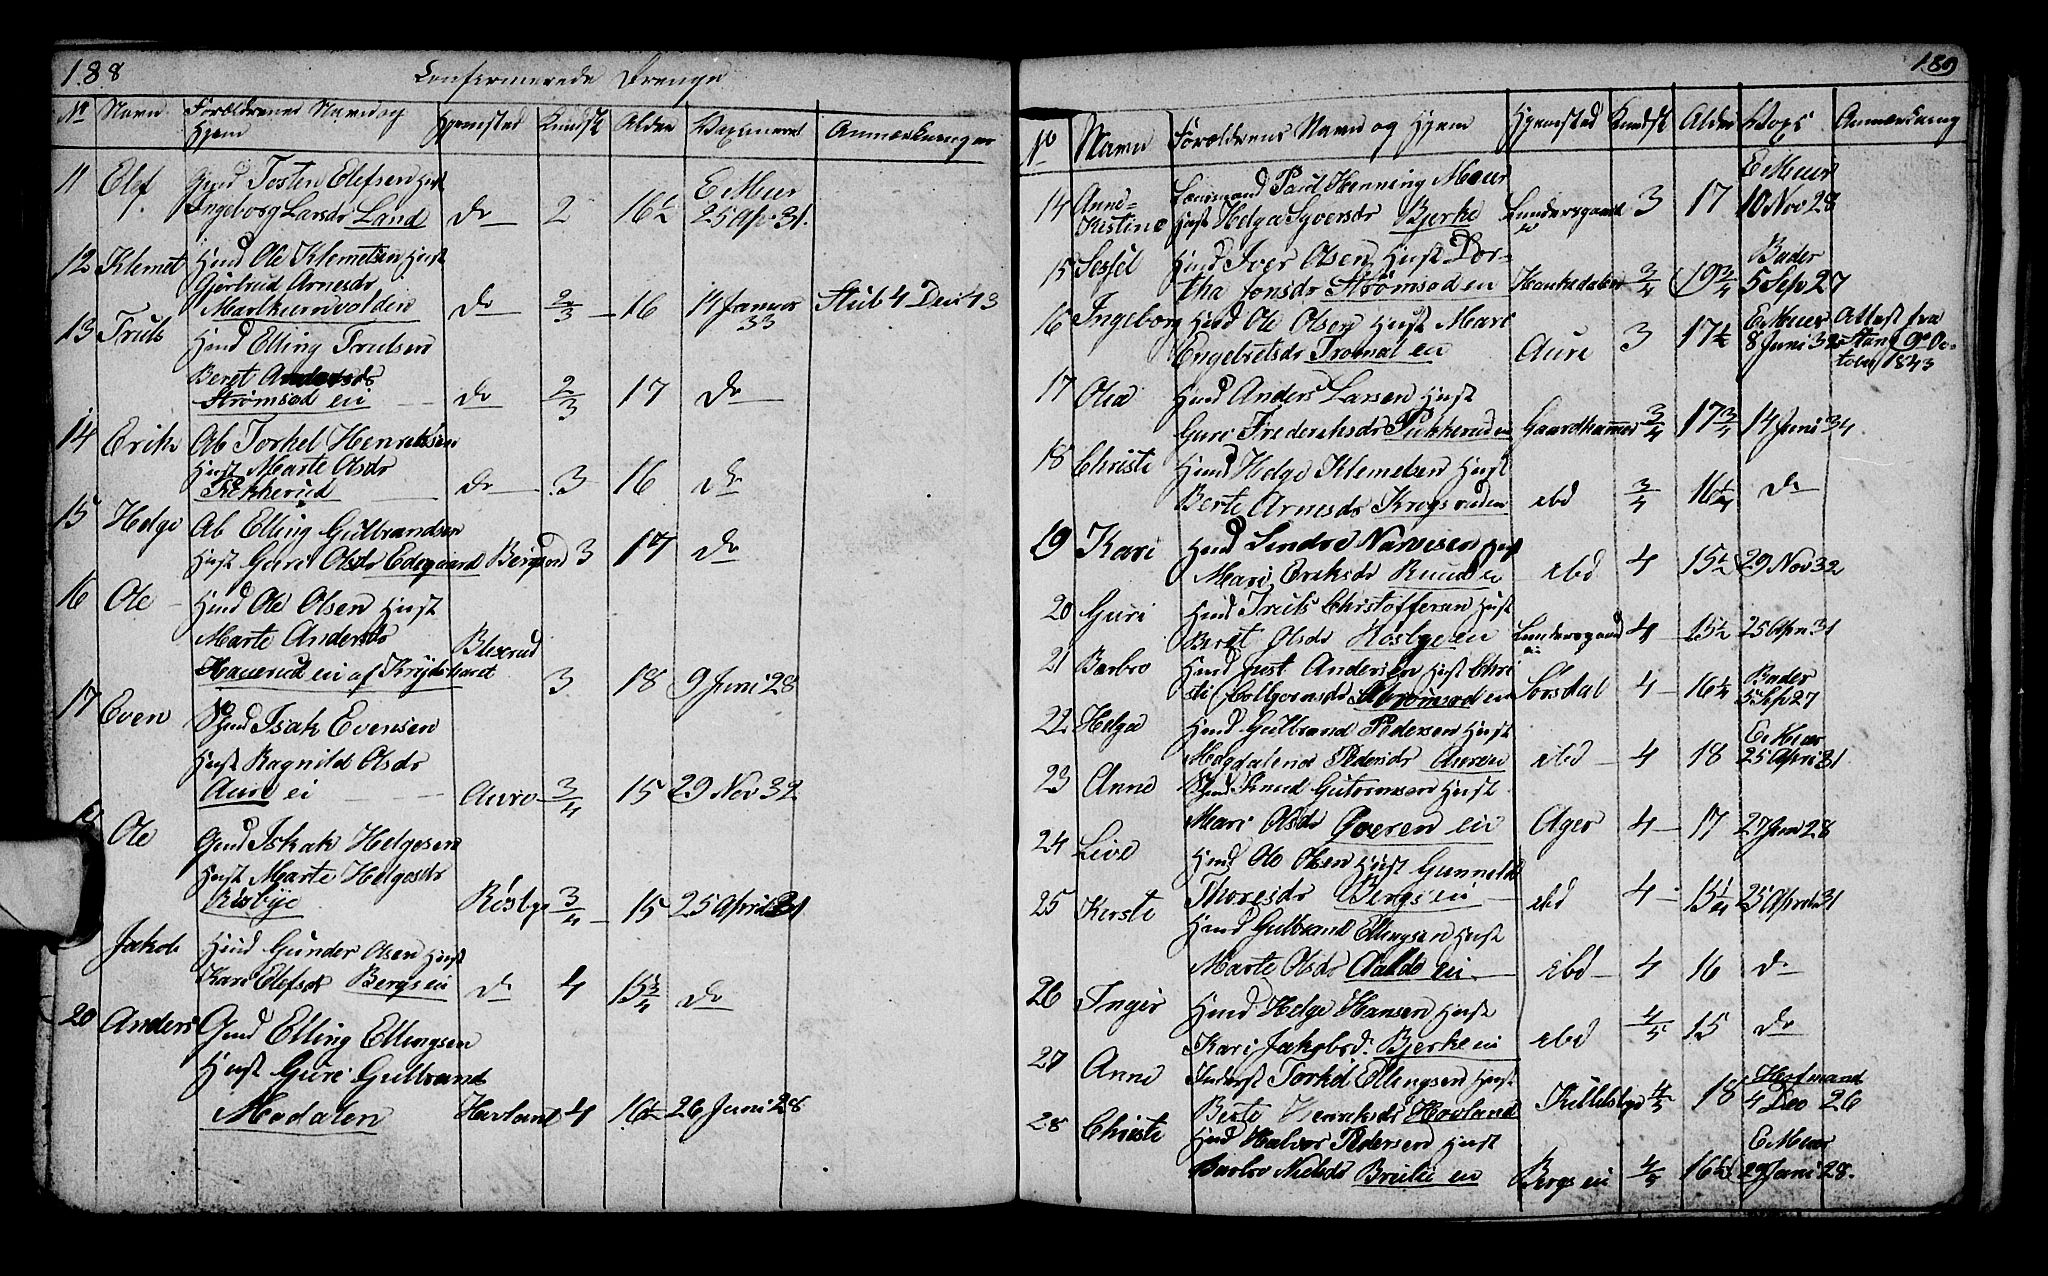 188
Confirmerede Drenge
No Navn Forældrenes Navn og Hjem Hjemsted Kundsk Alder Anmerkninger
11 Elef Gmd Tosten Elefsen Hust
Ingeborg Larsdr Land do 2 16½ E Meier 25 Apr 31.
12 Klemet Hmd Ole Klemetsen Hust
Gjertrud Arnesdr
do 2/3 16 14 Januar 33 4 Dec 43
13 Truls Hmd Elling Trulsen
Beret
Strømsod ei do 2/3 17 do
14 Erik Ab Torkel Henriksen
Hust Marte Olsdr
Pekkerud do 3 16 do
15 Helge Ab Elling Gulbrandsen
Hust Guri Olsdr Edegaard 3 17 do
16 Ole Hmd Ole Olsen Hust
Marte Andersdr
Haverud ei af 3 18 9 Juni 28
17 Even Gmd Isak Evensen
Hust Ragnild Olsdr
Aure ei Aure 3/4 15 29 Nov 32
Ole Gmd Iskak Helgesen
Hust Marte Helgesdr
Røsbye Røsbye 3/4 15 25 April 31
Jakob Hmd Gunder Olsen Hust
Kari Elefsdr Bergs ei do 4 15¾ do
20 Anders Gmd Elling Ellingsen
Hust Guri Gulbrand
Modalen Havland 4 16½ 26 Juni 28
189
No Navn Forældrenes Navn og Hjem Hjemsted Kundsk Alder Anmerkning
14 Anne Kistine Lensmand Paul Henning Meier
Hust Helga Syversdr Bjerke 3 17 E Meier 10 Nov 28
15 Hmd Iver Olsen Hust Dor-
tha Jonsdr Strømsod ei 3/4 19¾ Bader 5 Sep 27
16 Ingeborg Hmd Ole Olsen Hust Mari
Engebretsdr Tromal ei Aure 3 17½ E Meier 8 Juni 32 Attest fra Stang 9de Oc-
tober 1843
17 Olia Hmd Anders Larsen Hust
Guri Frederiksdr Pukkerud ei Gaardhammer 3/4 17¾ 14 Juni 34
18 Christi Hmd Helge Klemetsen Hust
Berte Arnesdr Krogsruden ebd 3/4 16¼ do
19 Kari Hmd Sindre Narvesen Hust
Mari Eriksdr Ruud ei ebd 4 15½ 29 Nov 32
20 Guri Hmd Truls Christoffersen Hust
Beret Olsdr ei 4 15½ 25 Apr 31
21 Barbro Hmd Just Andersen Hust Chri
sti Strømsod ei Sørsdal 4 16¼ Bader 5 Sep 27
22 Helga Hmd Gulbrand Pedersen Hust
Magdalena Pedersdr Auren ebd 4 18 E Meier 25 Apri 31
23 Anne Gmd Knud Guttormsen Hust
Mari Olsdr ei Ager 4 17 27 Jun 28
24 Live Hmd Ole Olsen Hust Gunnild
Thoresdr Bergs ei ebd 4 15¼ 25 April 31
25 Kersti Hmd Gulbrand Ellingsen Hust
Marte Olsdr ei ebd 4 16 do
26 Inger Hmd Helge Hansen Hust
Kari Jakobsd. Bjerke ei ebd 4/5 15 do
27 Anne Inderst Torkil Ellingsen Hust
Berte Henriksdr Hovland 4/5 18 Hofmand 4 Dec 26
28 Christi Hmd Halvor Pedersen Hust
Barbro Nielsdr ei Bergs ei 4/5 16½ E Meier 29 Juni 28.